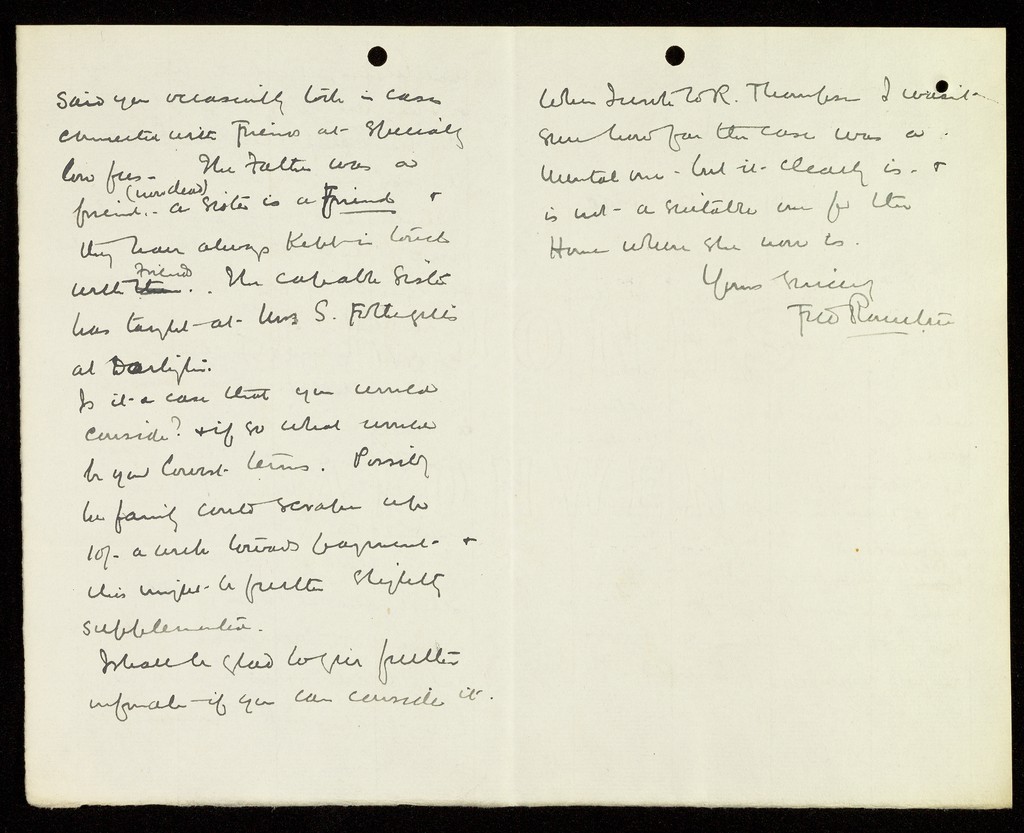 said you occasionally took in cases
connected with Friends at specially
low fees - The Father was a
(now dead)
friend - a sister is a Friend &
they have always kept in touch
with Friends. The capable Sister
has taught at Miss S.
at Darlington.
Is it a case that you would
consider? & if so what would
be your lowest terms. Possibly
the family could scrape up
10/- a week towards payment - &
this might be further slightly
supplemented.
I shall be glad to give further
information if you can consider it.
When I wrote to R. Thompson I wasn't
sure how far the case was a
Mental one - but it clearly is - &
is not a suitable one for the
Home where she now is.
Yours sincerely
Fred Rowntree